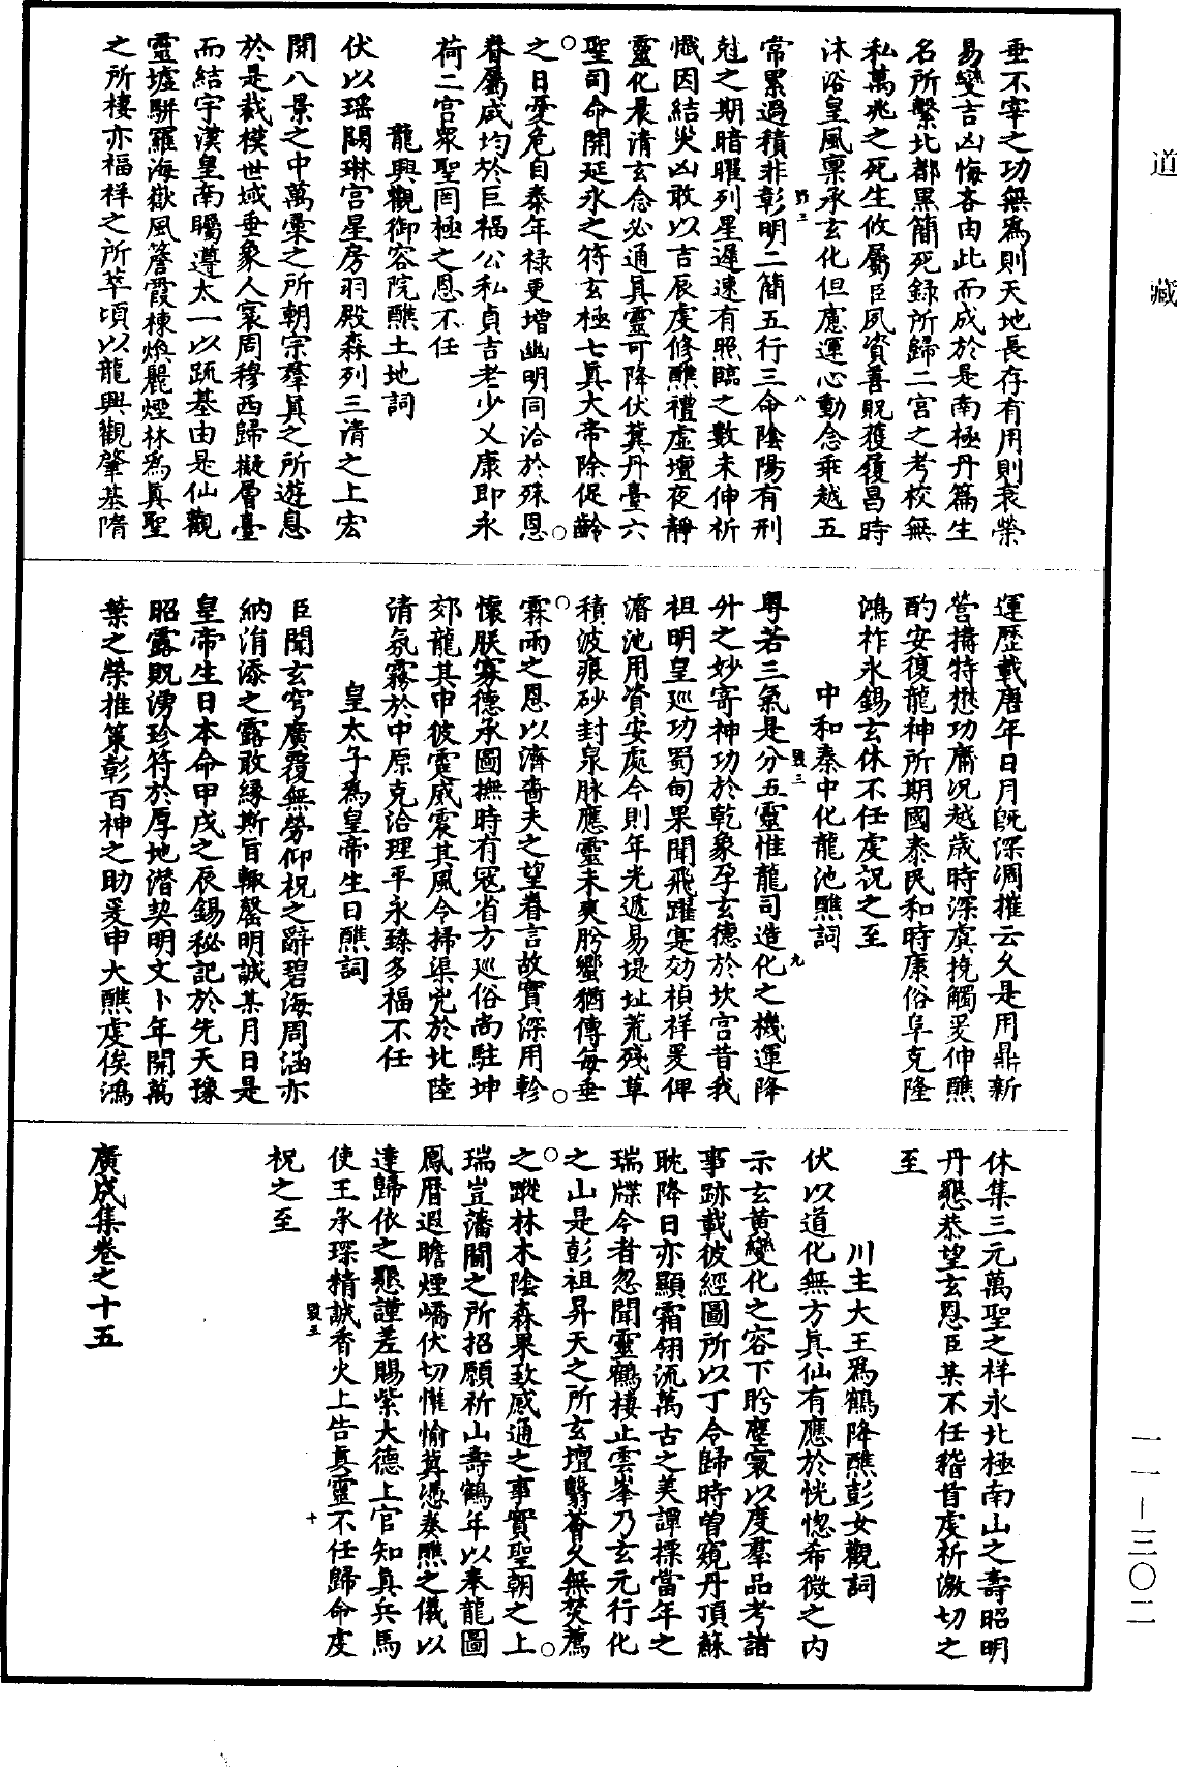 道藏
垂不宰之功無爲則天地長存有用則衰榮
易變吉凶悔吝由此而成於是南極丹篇生
名所繫北都黑簡死録所歸二宮之考校無
私萬兆之死生攸屬臣夙資善貺獲履昌時
沐浴皇風稟承玄化但慮運心動念乖越五
常累過積非彰明二簡五行三命陰陽有刑
尅之期暗曜列星遲速有照臨之數未伸祈
懺因結災凶敢以吉辰虔修醮禮虛壇夜靜
靈化晨清玄念必通眞靈可降伏冀丹臺六
聖司命開延永之符玄極七眞大帝除促齡
之日憂危自泰年禄更增幽明同洽於殊恩
眷屬咸均於巨福公私貞吉老少乂康即永
荷二宮衆聖罔極之恩不任
龍興觀御容院醮土地詞
伏以瑶闕琳宮星房羽殿森列三清之上宏
開八景之中萬靈之所朝宗羣眞之所遊息
於是裁模世域垂象人寰周穆西歸擬層臺
而結宇漢皇南矚遵太一以疏基由是仙觀
靈墟駢羅海嶽風簷霞棟煥麗煙林爲眞聖
之所棲亦福祥之所萃頃以龍興觀肇基隋
運歷載唐年日月旣深凋摧云久是用鼎新
營搆特懋功庸況越歲時深虞撓觸爰伸醮
酌安復龍神所期國泰民和時康俗阜克隆
鴻祚永錫玄休不任虔祝之至
中和秦中化龍池醮詞
粤若三氣是分五靈惟龍司造化之機運降
升之妙寄神功於乾象孕玄德於坎宮昔我
祖明皇巡功蜀甸果聞飛躍寔効禎祥爰俾
濬池用資安處今則年光遞易堤址荒殘草
積波痕砂封泉脉應靈未爽肹蠁猶傳每垂
霖雨之恩以濟嗇夫之望眷言故實深用軫
懷朕寡德承圖撫時有寇省方巡俗尚駐坤
郊龍其申彼靈威震其風令掃渠兇於北陸
清氛霧於中原克洽理平永臻多福不任
皇太子爲皇帝生日醮詞
臣聞玄穹廣覆無勞仰祝之辭碧海周涵亦
納涓添之露敢緣斯旨輙罄明誠某月日是
皇帝生日本命甲戌之辰錫秘記於先天豫
昭露貺湧珍符於厚地潜契明文卜年開萬
葉之榮推策彰百神之助爰申大醮虔俟鴻
休集三元萬聖之祥永北極南山之壽昭明
丹懇恭望玄恩臣某不任稽首虔祈激切之
至
川主大王爲鶴降醮彭女觀詞
伏以道化無方眞仙有應於恍惚希微之内
示玄黄變化之容下盻塵寰以度羣品考諸
事跡載彼經圖所以丁令歸時曽窺丹頂蘇
耽降日亦顯霜翎流萬古之美譚摽當年之
瑞牒今者忽聞靈鶴棲止雲峯乃玄元行化
之山是彭祖昇天之所玄壇翳薈久無焚薦
之蹤林木陰森果致感通之事實聖朝之上
瑞豈藩閫之所招願祈山壽鶴年以奉龍圖
鳳曆遐瞻煙嶠伏切懽愉冀憑奏醮之儀以
達歸依之懇謹差賜紫大德上官知眞兵馬
使王承琛精誠香火上告眞靈不任歸命虔
祝之至
廣成集卷之十五
一一—三〇二